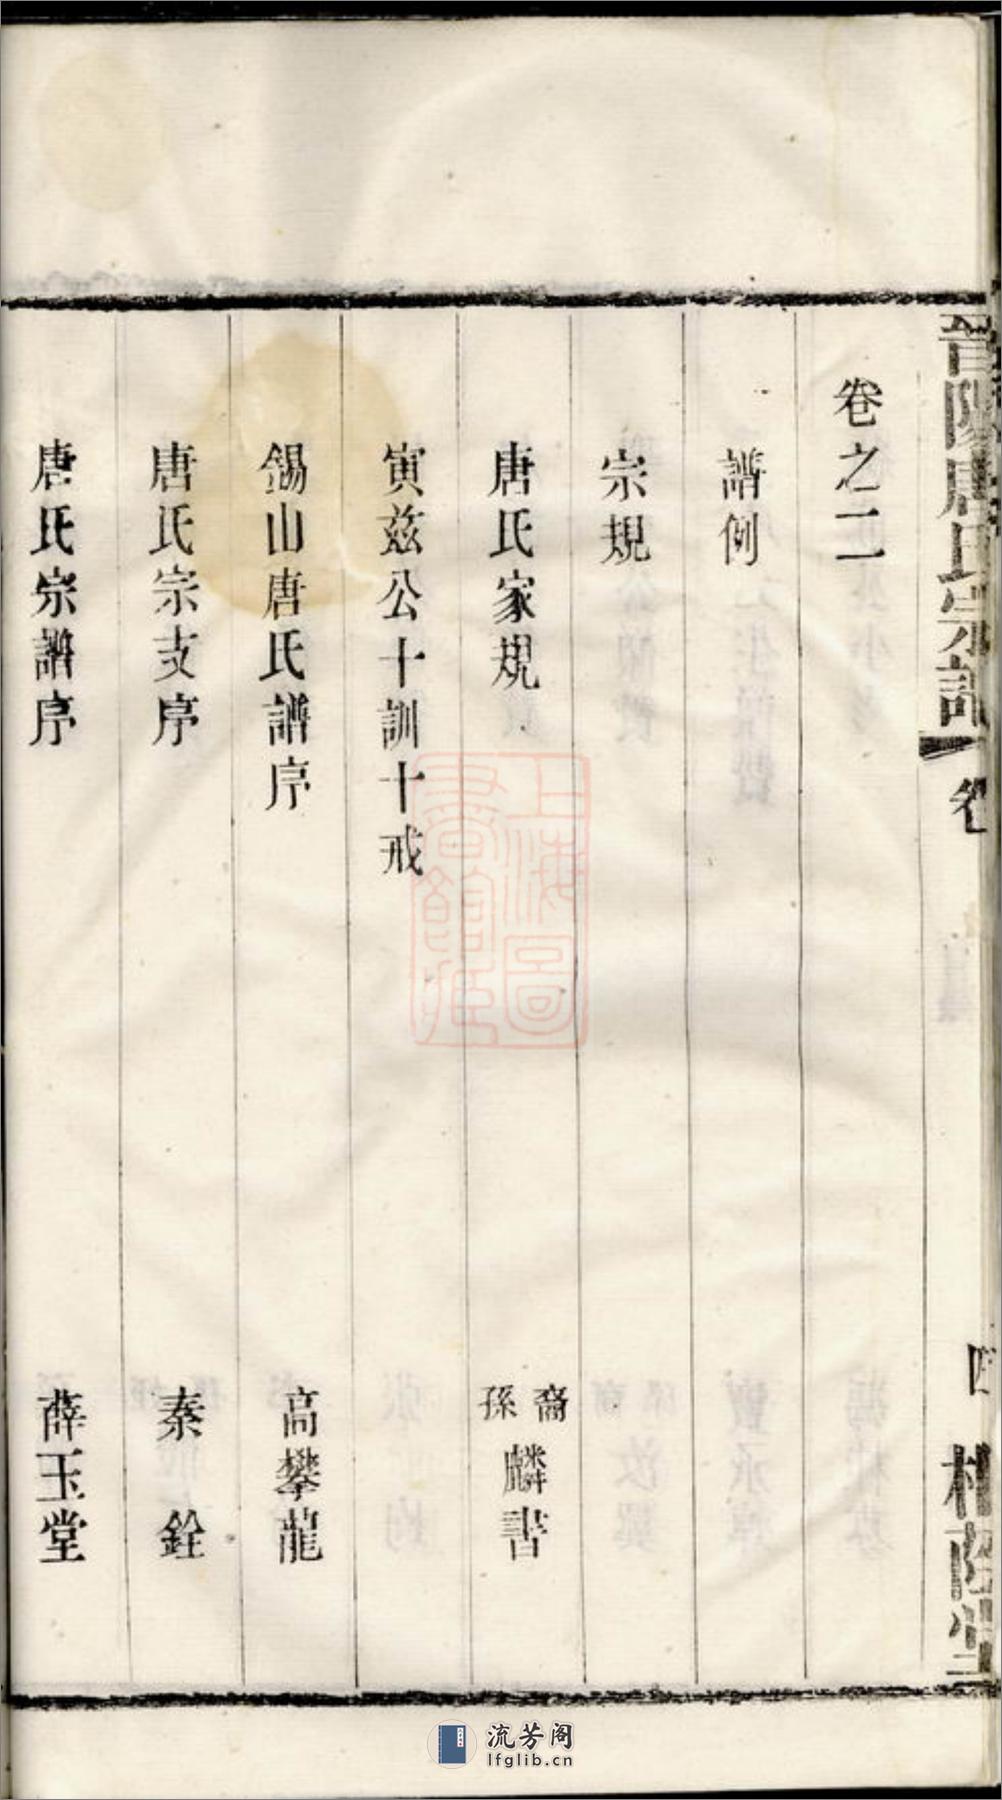 晉陽唐氏宗譜
卷
四
卷之二
譜例
宗規
唐氏家規 裔孫麟書
寅兹公十訓十戒
錫山唐氏譜序 高攀龍
唐氏宗支序 秦銓
唐氏宗譜序 薛玉堂
上海圖
書館藏
流芳阁
lfglib.cn